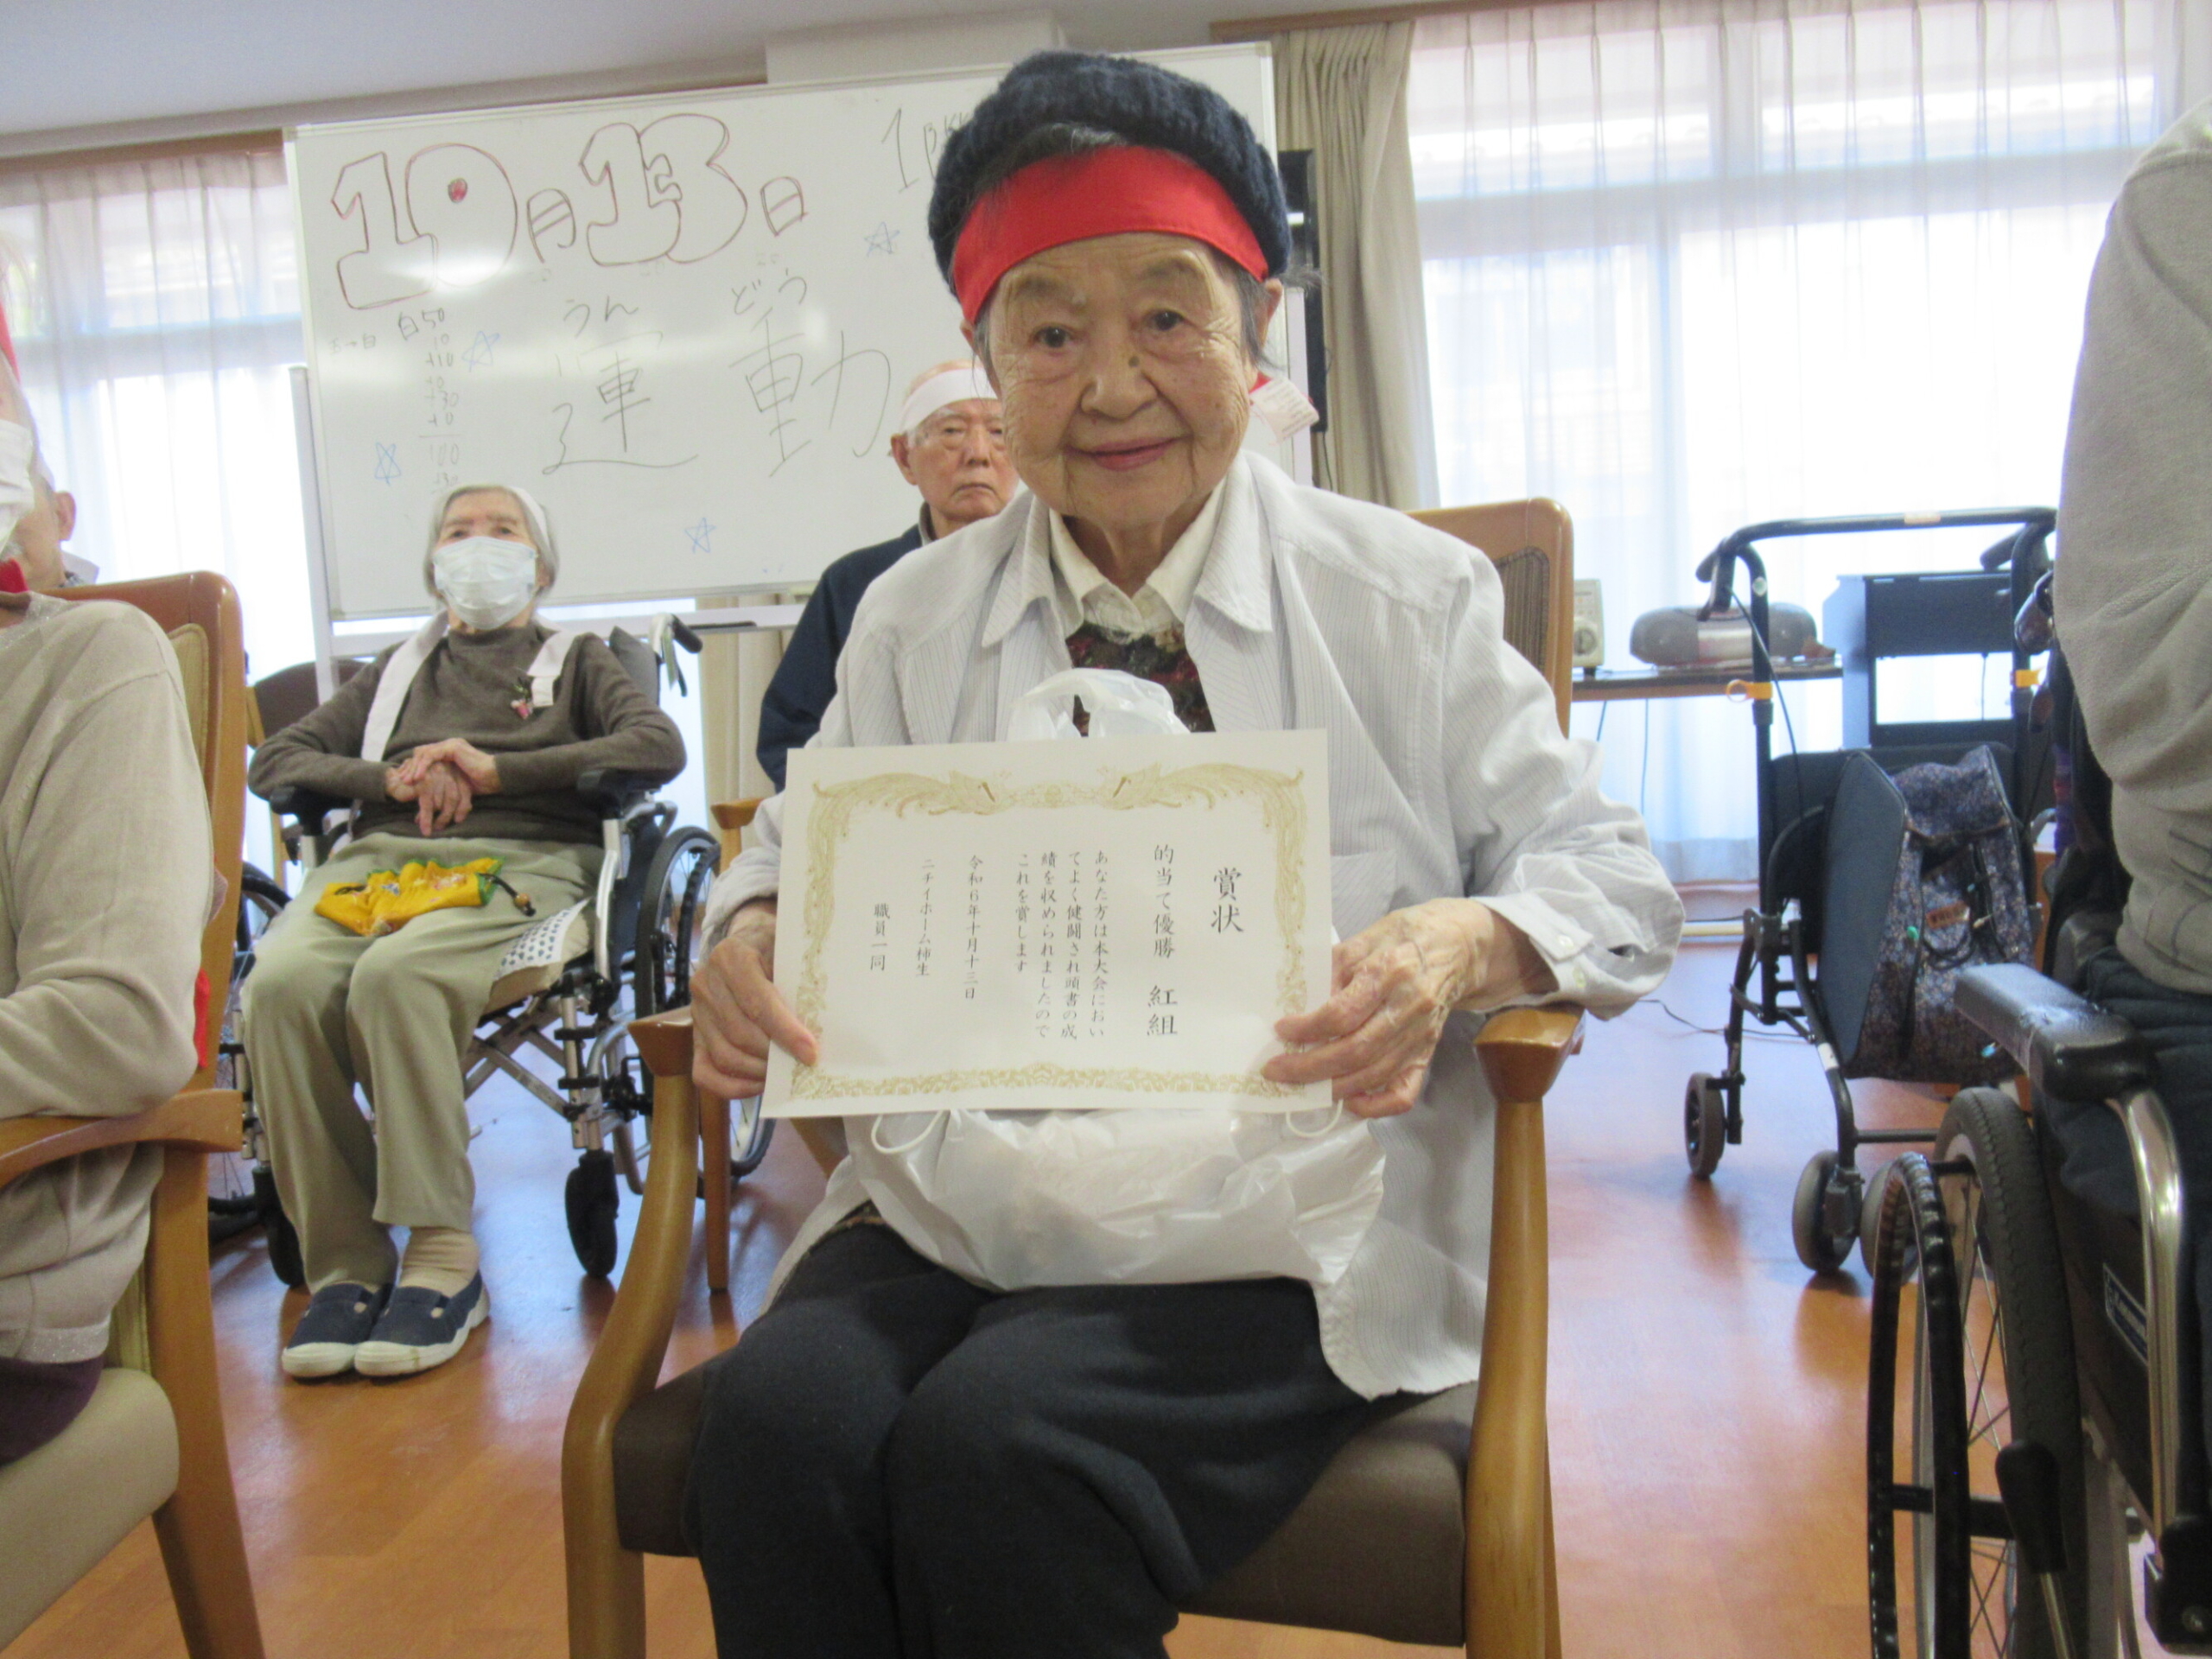 10月13日
うん どう
運 動
白50
10
+10
+30
賞状
的当て優勝 紅組
あなた方は本大会におい
てよく健闘され頭書の成
績を収められましたので
これを賞します
令和6年十月十三日
ニチイホーム柿生
職員一同